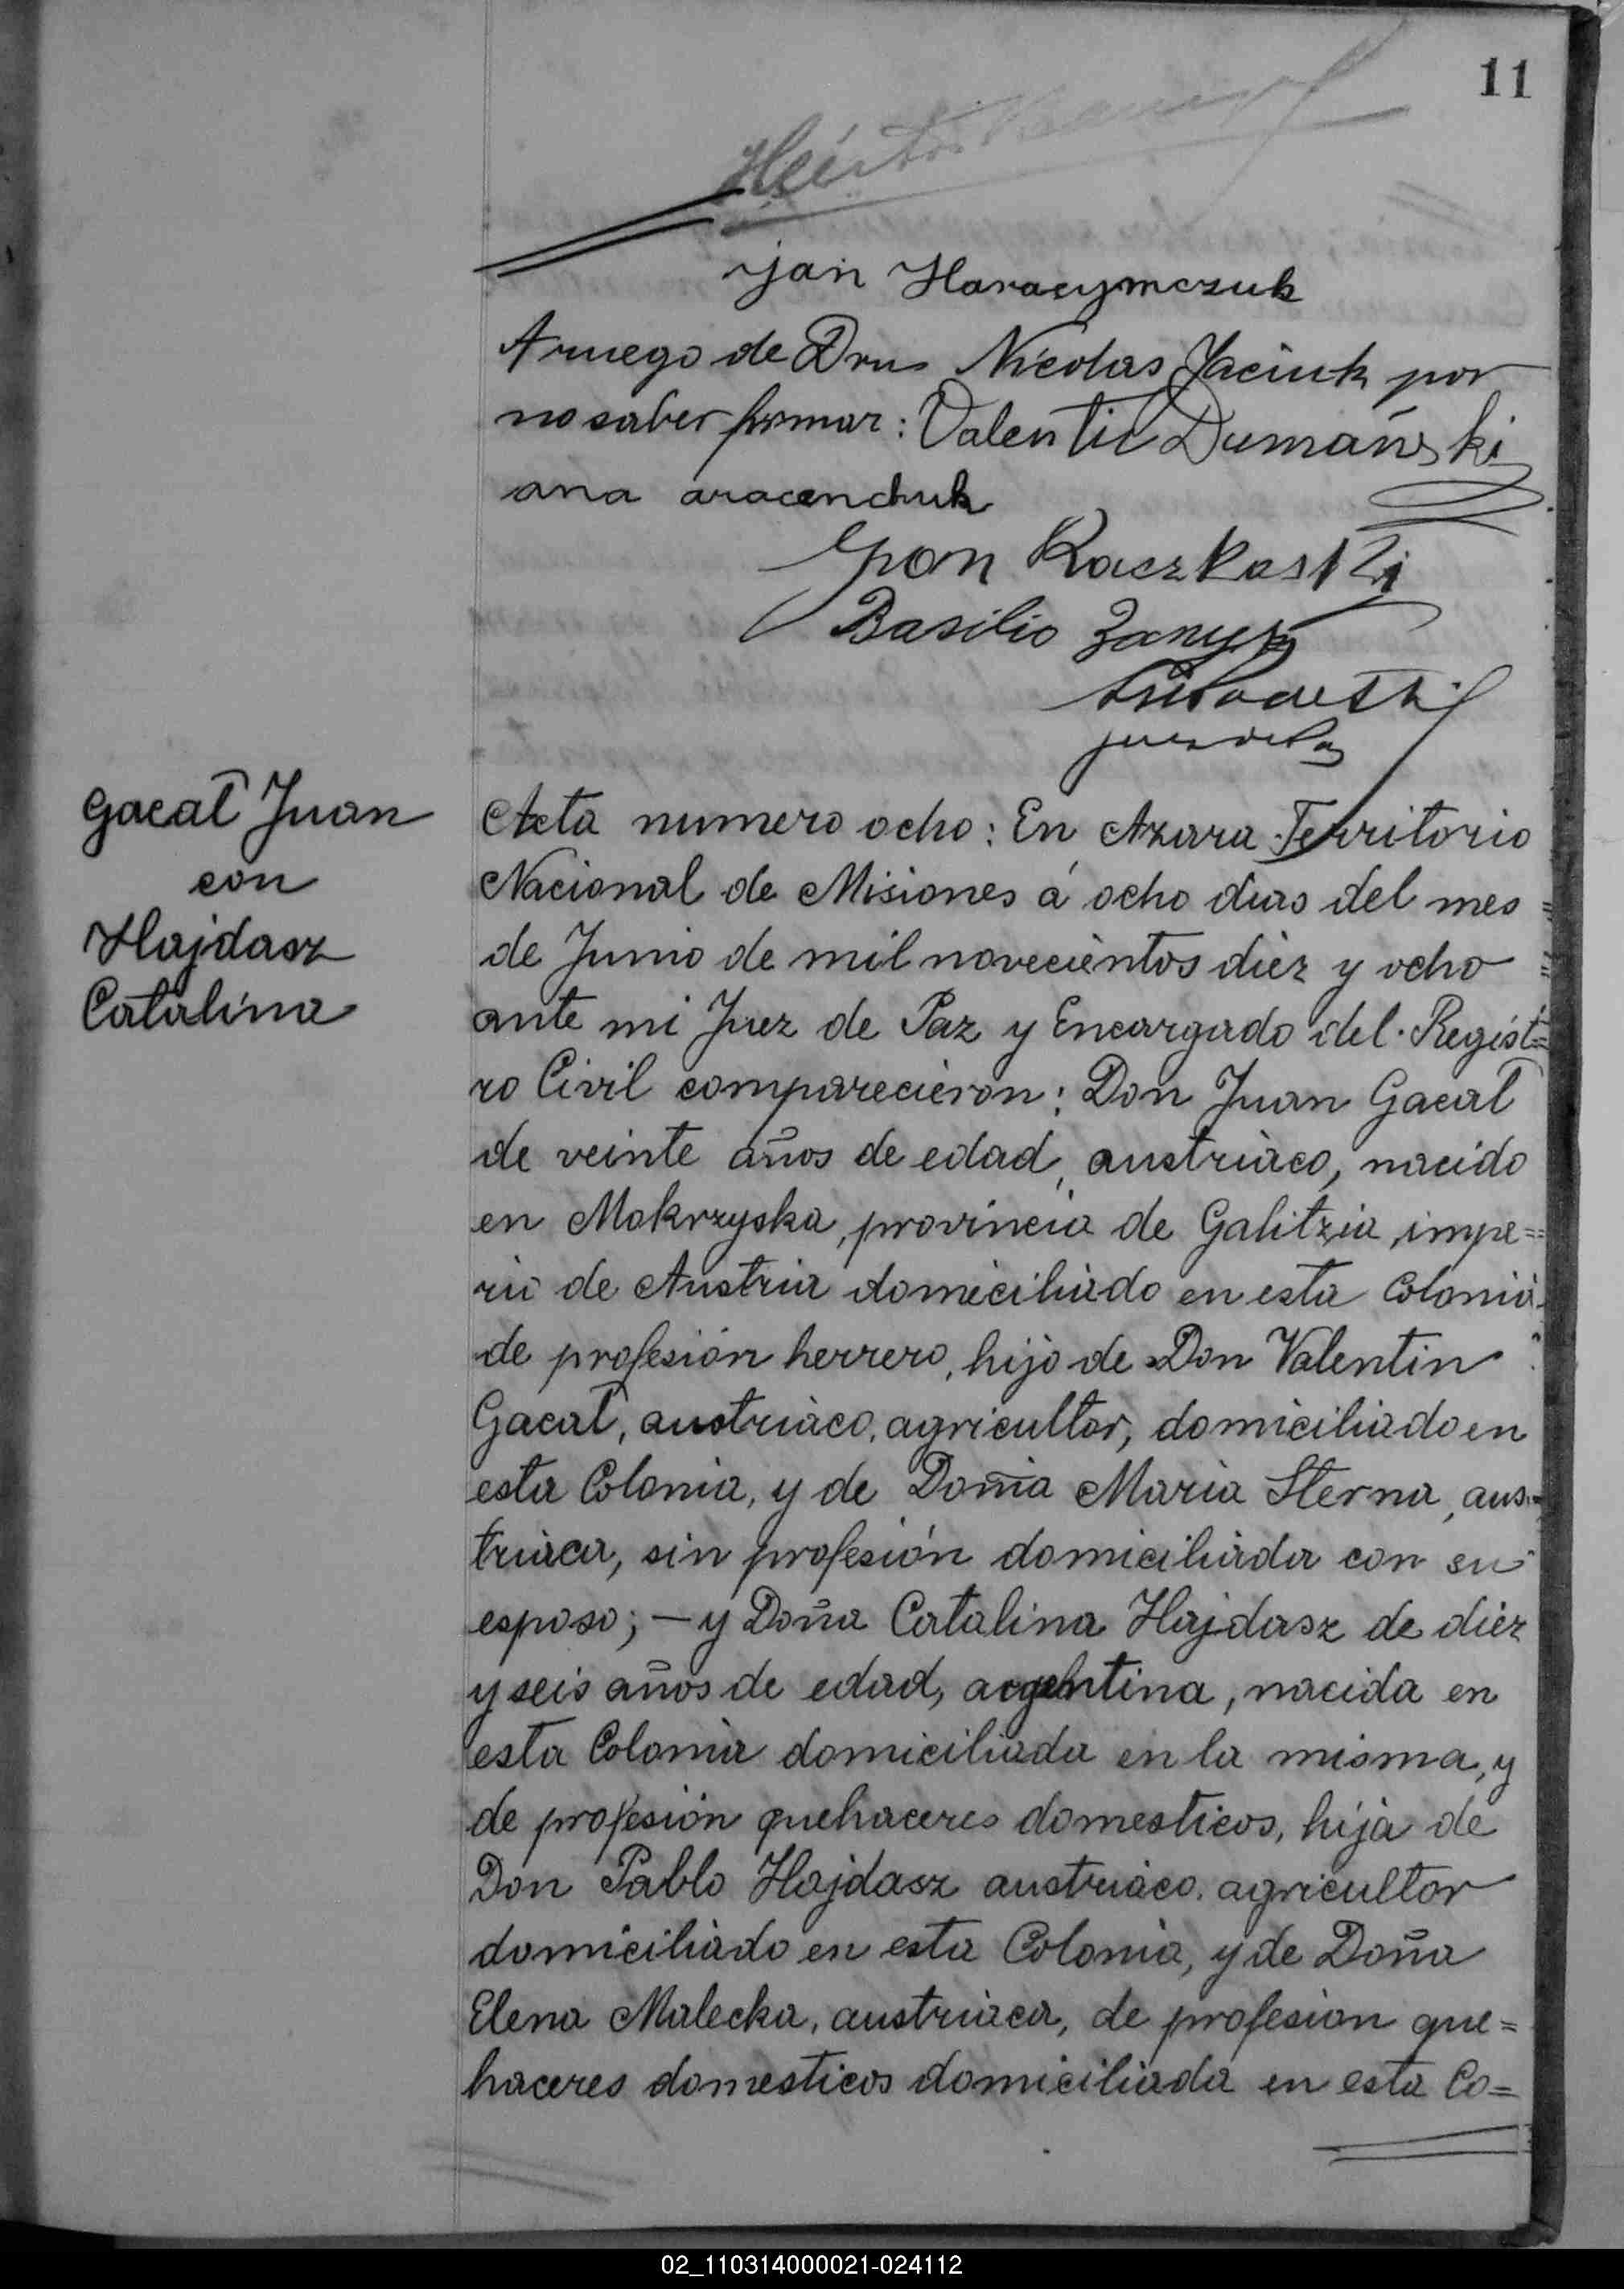 11
Jan Haracymczuk
A ruego de Don Nicolas Jaciuk por
no saber firmar: Valentin Dumański
ana aracenchuk
Basilio
Gacał Juan
con
Hajdasz
Catalina
Acta numero ocho: En Azara Territorio
Nacional de Misiones á ocho dias del mes
de Junio de mil novecientos diez y ocho
ante mi Juez de Paz y Encargado del Regist=
ro Civil comparecieron: Don Juan Gacał
de veinte años de edad, austriaco, nacido
en Mokrzyska, provincia de Galitzia, impe=
rio de Austria domiciliado en esta Colonia
de profesión herrero, hijo de Don Valentin
Gacał, austriaco, agricultor, domiciliado en
esta Colonia, y de Doña Maria Sterna, aus=
triaca, sin profesión domiciliada con su
esposo; — y Doña Catalina Hajdasz de diez
y seis años de edad, argentina, nacida en
esta Colonia domiciliada en la misma, y
de profesión quehaceres domesticos, hija de
Don Pablo Hajdasz austriaco, agricultor
domiciliado en esta Colonia, y de Doña
Elena Malecka, austriaca, de profesion que=
haceres domesticos domiciliada en esta Co=
02_110314000021-024112